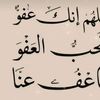 لهم إنك عفو
تحب العفو
فاعف عنا